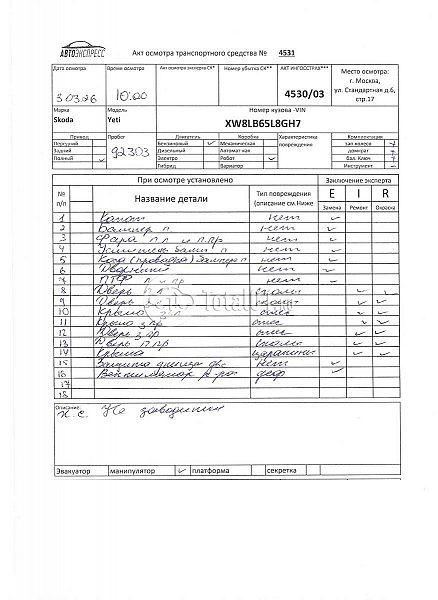 АВТОЭКСПРЕСС
Акт осмотра транспортного средства № 4531
Дата осмотра Время осмотра Акт осмотра эксперта СК* Номер убытка СК** АКТ ИНГОССТРАХ***
10:00 4530/03
Место осмотра:
г. Москва,
ул. Стандартная д.6,
стр.17
Марка Модель Номер кузова -VIN
Skoda Yeti XW8LB65L8GH7
Привод Пробег Двигатель Коробка Характеристика повреждения Комплектация
Передний Бензиновый ✓ Механическая зап колесо
Задний 92303 Дизельный Автомат ная домкрат
Полный ✓ Электро Робот ✓ бал. Ключ
Гибрид Вариатор Инструмент
При осмотре установлено Заключение эксперта
№ п/п Название детали Тип повреждения (описание см.Ниже E I R
Замена Ремонт Окраска
1 Капот нет ✓
2 Бампер п нет ✓
3 Фара п л и п.пр нет ✓
4 Усилитель бамп п нет ✓
5 Коса (проводка) бампера п нет ✓
6 нет ✓
7 ПТФ л и пр нет ✓
8 Дверь п л ✓ ✓
9 Дверь з л ✓ ✓
10 Крыло з л ✓ ✓
11 Крыло з пр ✓ ✓
12 Дверь з пр ✓ ✓
13 Дверь п пр ✓ ✓
14 Крыша царапины ✓ ✓
15 Защита днища нет ✓
16 Вентилятор деф ✓
17
18
Описание:
Не заводится
Эвакуатор манипулятор ✓ платформа секретка
Total